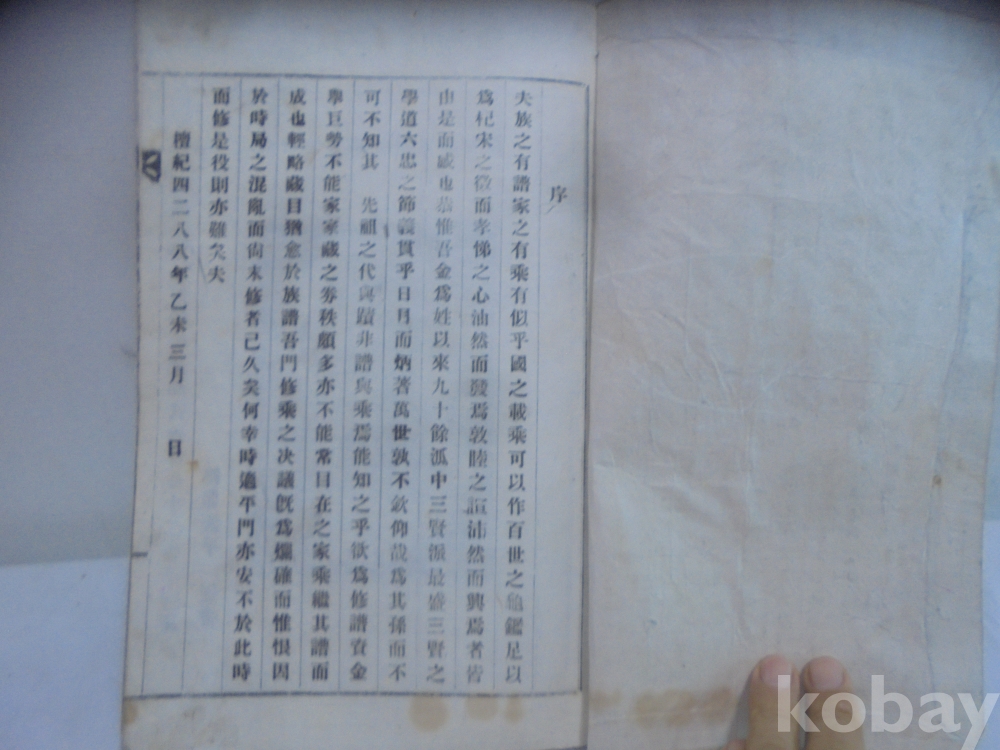 序
夫族之有譜家之有乘有似乎國之載乘可以作百世之龜鑑足以
爲杞宋之徵而孝悌之心油然而發焉敦睦之誼沛然而興焉者皆
由是而感也恭惟吾金爲姓以來九十餘派中三賢派最盛三賢之
學道六忠之節義貫乎日月而炳著萬世孰不欽仰哉爲其孫而不
可不知其 先祖之代與蹟非譜與乘焉能知之乎欲爲修譜資金
擧巨勞不能家家藏之券秩頗多亦不能常目在之家乘繼其譜而
成也輕略藏目猶愈於族譜吾門修乘之决議旣爲爛確而惟恨因
於時局之混亂而尙未修者已久矣何幸時適平門亦安不於此時
而修是役則亦難矣夫
檀紀四二八八年乙未三月 日
kobay